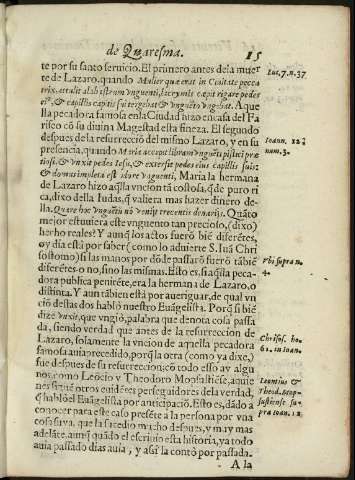 de Quaresma.
15
te por su santo seruicio. El primero antes de la muer
te de Lazaro, quando Mulier quæ erat in Ciuitate pecca
trix, attulit alabastrum vnguenti, lacrymis cœpit rigare pedes
eius, & capillis capitis sui tergebat & vnguēto vngebat. Aque
lla pecadora famosa en la Ciudad hizo en casa del Fa
riseo cō su diuina Magestad esta fineza. El segundo
despues de la resurreccion del mismo Lazaro, y en su
presencia, quando Maria accepit libram vnguēti pistici præ
tiosi, & vnxit pedes Iesu, & extersit pedes eius capillis suis:
& domus impleta est odore vnguenti, Maria la hermana
de Lazaro hizo aq̄lla vncion tā costosa, q̄ de puro ri
ca, dixo della Iudas, q̄ valiera mas hazer dinero de-
lla. Quare hoc vnguētū nō veniit trecentis denarijs. Quāto
mejor estuuiera este vnguento tan precioso, (dixo)
hecho reales? Y aunq̄ los actos fuerō biē diferētes,
y dia està por saber (como lo aduierte S. Iuā Chri
sostomo) si las manos por dōde passarō fuerō tābiē
diferētes o no, sino las mismas. Esto es, si aq̄lla peca-
dora publica penitēte, era la hermana de Lazaro, o
distinta. Y aun tābien està por aueriguar, de qual vn
ciō destas dos hablò nuestro Euāgelista. Porq̄ si biē
dize vnxit, que vngiò, palabra que denota cosa passa
da, siendo verdad que antes de la resurreccion de
Lazaro, solamente la vncion de aquella pecadora
famosa auia precedido, porq̄ la otra (como ya dixe,)
fue despues de su resurreccion; cō todo esso ay algu
nos, como Leōcio y Theodoro Mopsuestiēse, a quie
nes siguē otros cuidadosos perseguidores de la verdad,
q̄ hablò el Euāgelista por anticipaciō. Esto es, dādo a
conocer para este caso presēte a la persona por vna
cosa suya, que la sucedio mucho despues, y muy mas
adelāte, aunq̄ quādo el escriuio esta historia, ya todo
auia passado dias auia, y assi la contò por passada.
A la
Luc. 7. n. 37
Ioann. 12.
num. 3.
Vbi supra n.
4.
Chrisos. ho.
61. in Ioan.
Leontius &
Theod. Mop-
suestiense su-
pra Ioan. 12.